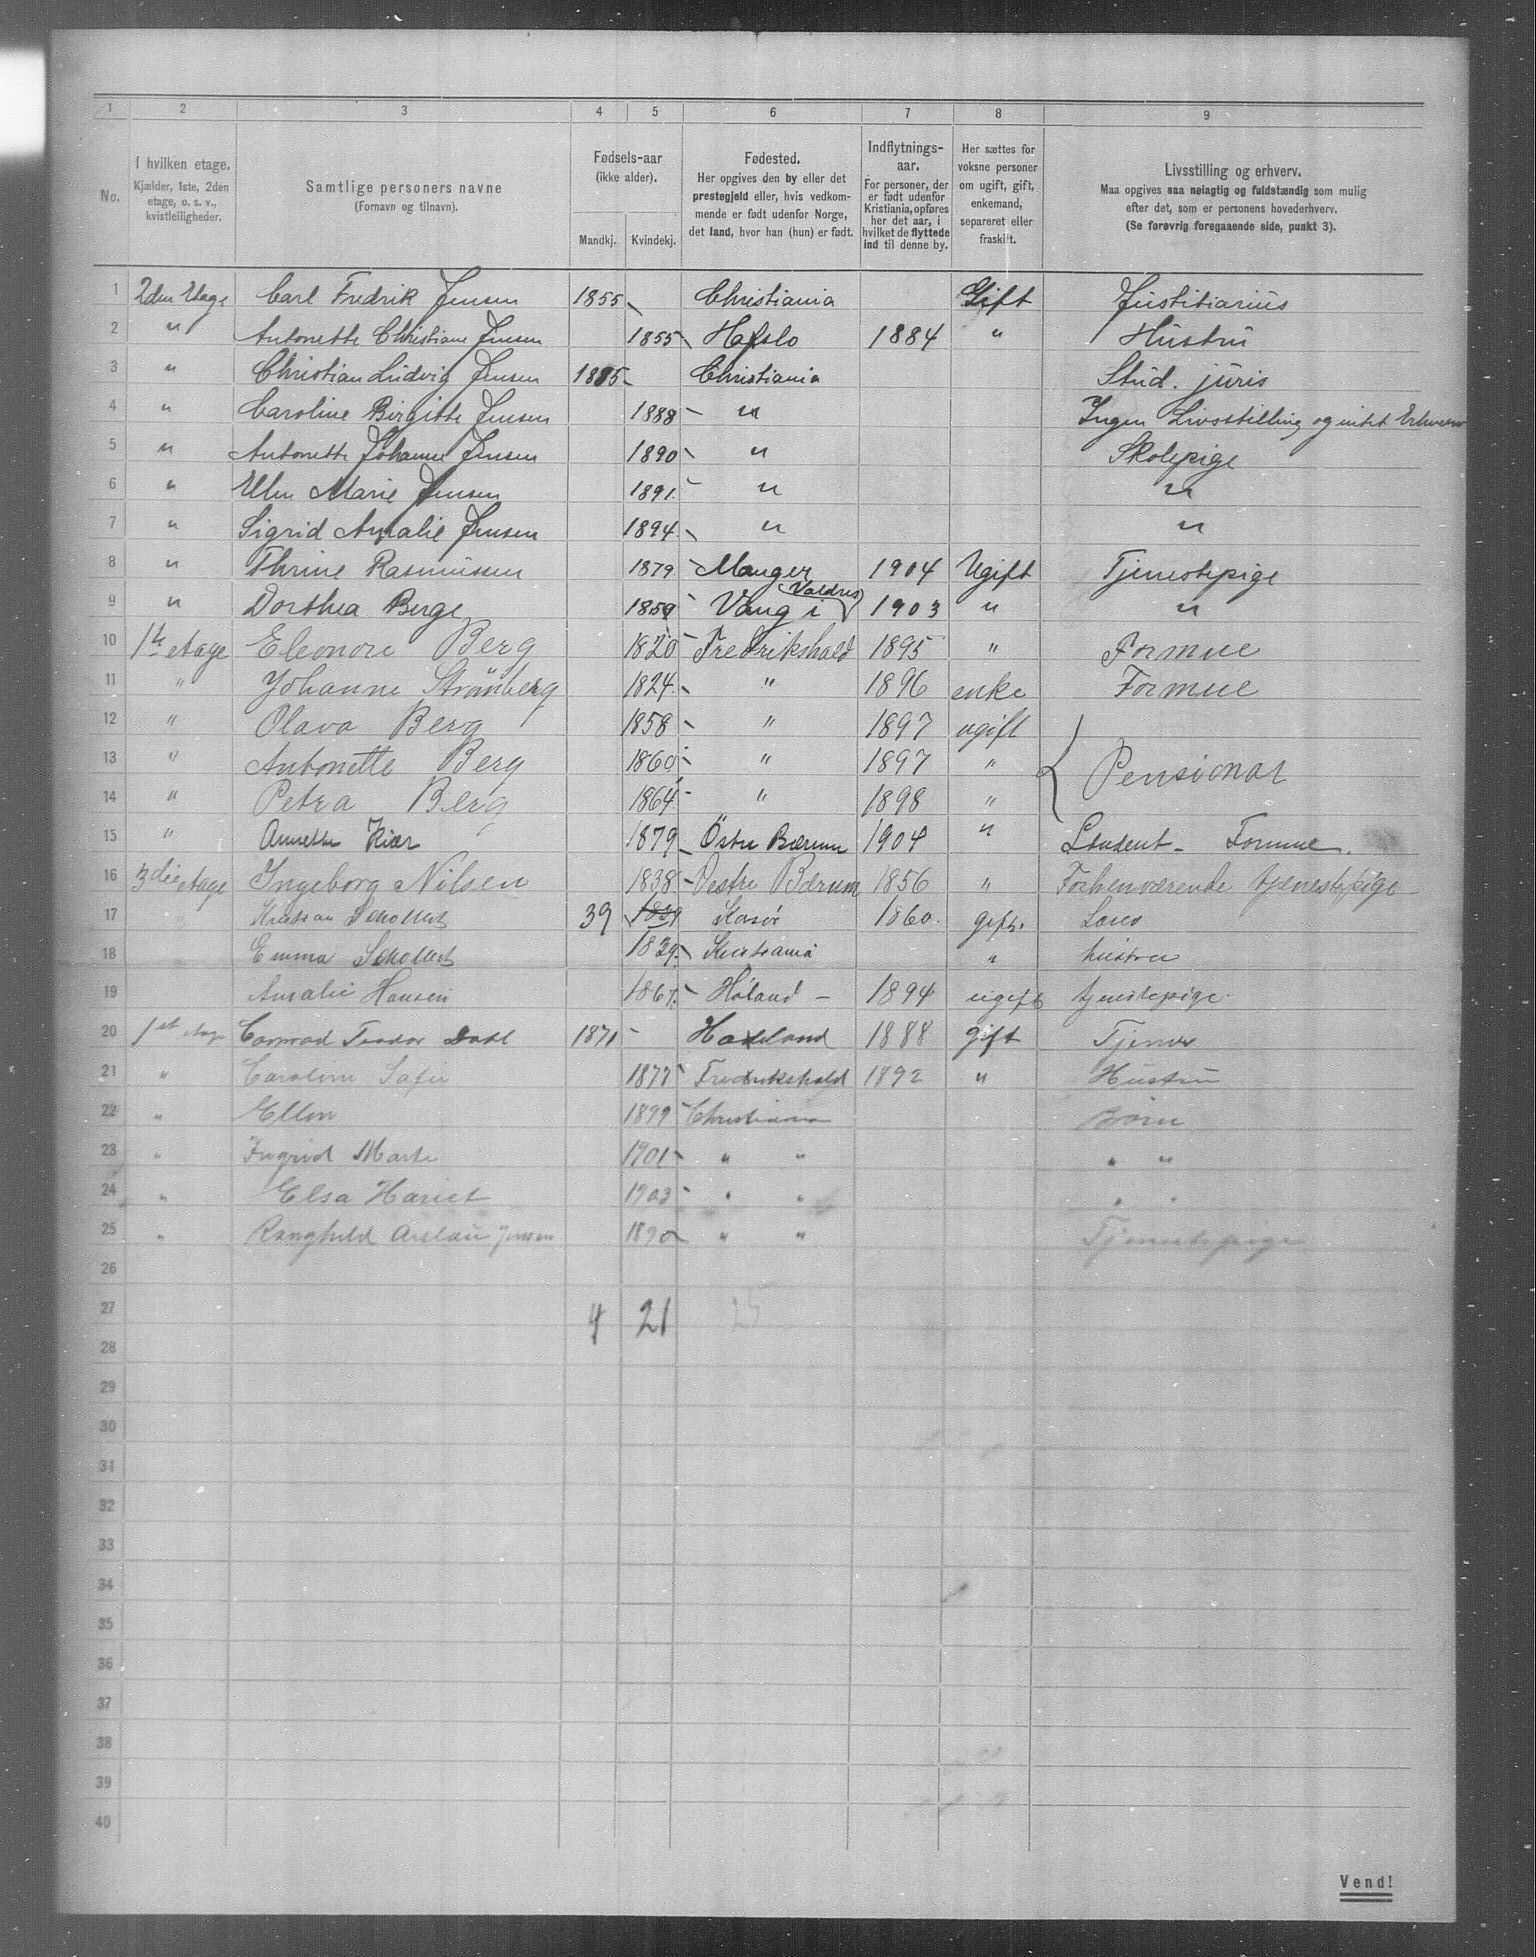 1 2 3 4 5 6 7 8 9
No. I hvilken etage. Kjælder, 1ste, 2den etage, o. s. v., kvistleiligheder. Samtlige personers navne (Fornavn og tilnavn). Fødsels-aar (ikke alder). Mandkj. Kvindekj. Fødested. Her opgives den by eller det prestegjeld eller, hvis vedkommende er født udenfor Norge, det land, hvor han (hun) er født. Indflytnings-aar. For personer, der er født udenfor Kristiania, opføres her det aar, i hvilket de flyttede ind til denne by. Her sættes for voksne personer om ugift, gift, enkemand, separeret eller fraskilt. Livsstilling og erhverv. Maa opgives saa nøiagtig og fuldstændig som mulig efter det, som er personens hovederhverv. (Se forøvrig foregaaende side, punkt 3).
1 2den Etage Carl Fredrik Jensen 1855 Christiania Gift Justitiarius
2 " Antonette Christiane Jensen 1855 Hafslo 1884 " Hustru
3 " Christian Ludvig Jensen 1885 Christiania Stud. juris
4 " Caroline Birgitte Jensen 1888 " Ingen Livsstilling og intet Erhverv
5 " Antonette Johanne Jensen 1890 " Skolepige
6 " Ellen Marie Jensen 1891 " "
7 " Sigrid Amalie Jensen 1894 " "
8 " Thrine Rasmussen 1879 Manger 1904 Ugift Tjenestepige
9 " Dorthea Berge 1859 Vang i Valdres 1903 " "
10 1ste etage Eleonore Berg 1820 Fredrikshald 1895 " Formue
11 " Johanne Strønberg 1824 " 1896 enke Formue
12 " Olava Berg 1858 " 1897 ugift
13 " Antonette Berg 1860 " 1897 " Pensionat
14 " Petra Berg 1864 " 1898 "
15 " Annette Kiær 1879 Østre Bærum 1904 " Student - Formue.
16 3die etage Ingeborg Nilsen 1838 Vestre Bærum 1856 " Forhenværende tjenestepige
17 " 39 1839 1860 gift.
18 Emma 1839 Kristiania " hustru
19 Amalie Hansen 1867 Høland - 1894 ugift tjenestepige
20 1st etage Conrad Teodor Dahl 1871 1888 gift Tjener
21 " Caroline 1877 Fredrikshald 1892 " Hustru
22 " Ellen 1899 Christiania Børn
23 " Ingrid Marte 1901 " " " "
24 " Elsa Hariet 1903 " " " "
25 " Ranghild Aslau Jensen 1890 " " Tjenestepige
26
27 4 21 25
28
29
30
31
32
33
34
35
36
37
38
39
40
Vend!